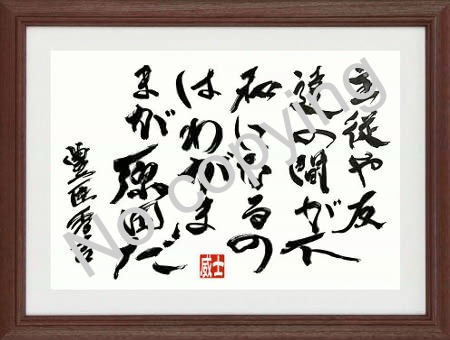 主従や友
達の間が不
和になるの
はわがま
まが原因だ
豊臣秀吉
威士
No copying